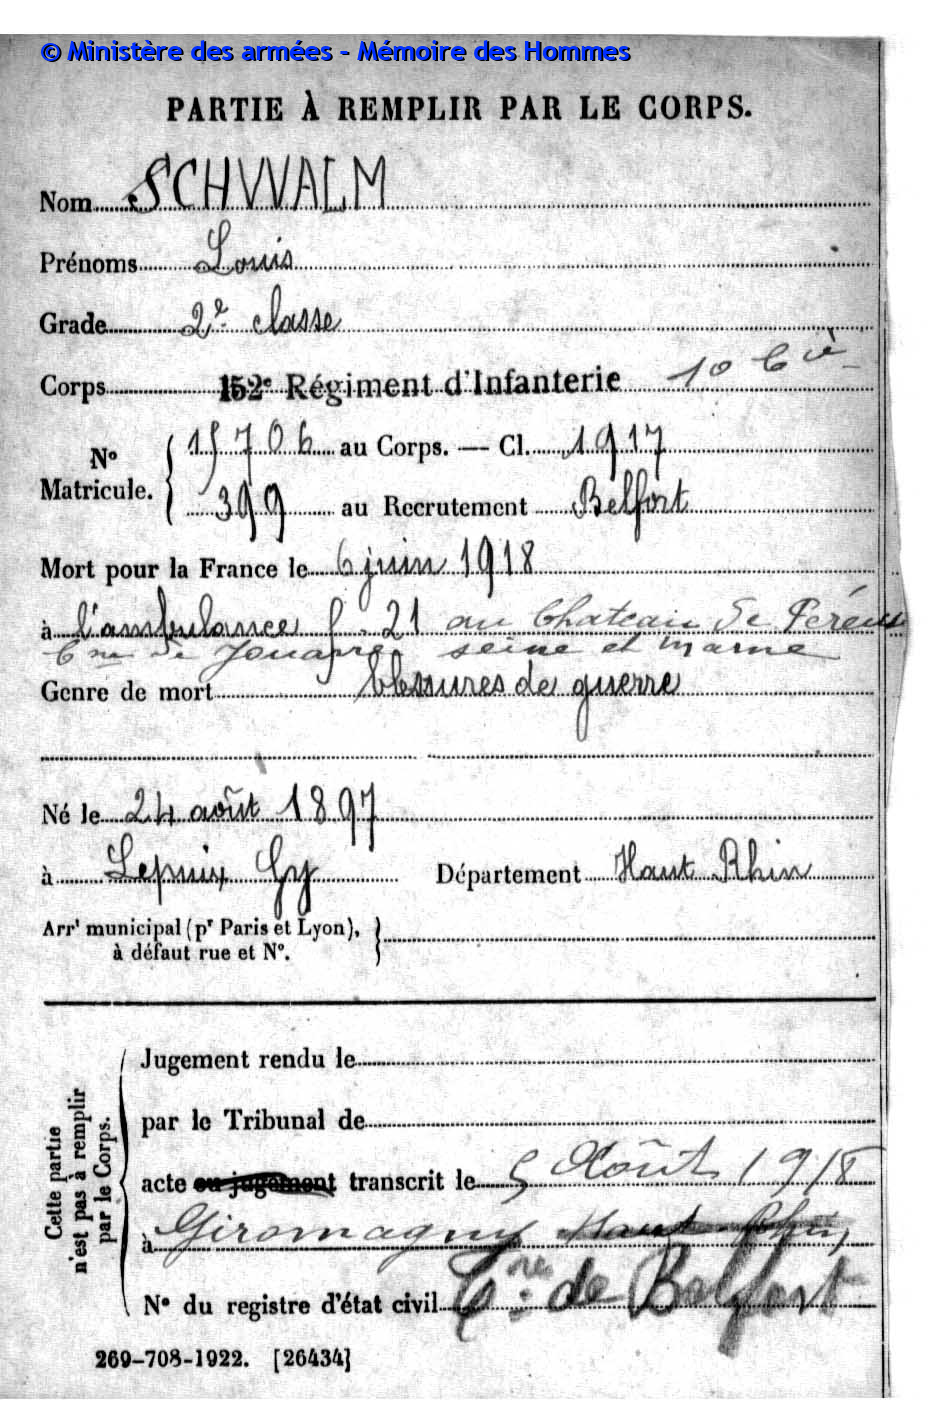 © Ministère des armées - Mémoire des Hommes
PARTIE À REMPLIR PAR LE CORPS.
Nom SCHWALM
Prénoms Louis
Grade 2e classe
Corps 152e Régiment d'Infanterie 10 Cie
N° Matricule. 15706 au Corps. — Cl. 1917
399 au Recrutement Belfort
Mort pour la France le 6 juin 1918
à l'ambulance 21 au Chateau de Péreuse
Cne de Jouarre seine et marne
Genre de mort blessures de guerre
Né le 24 août 1897
à Lepuix Gy Département Haut Rhin
Arrt municipal (pr Paris et Lyon),
à défaut rue et N°.
Cette partie
n'est pas à remplir
par le Corps.
Jugement rendu le
par le Tribunal de
acte ou jugement transcrit le 5 Août 1918
à Giromagny Haut Rhin
N° du registre d'état civil Tre de Belfort
269-708-1922. [26434]